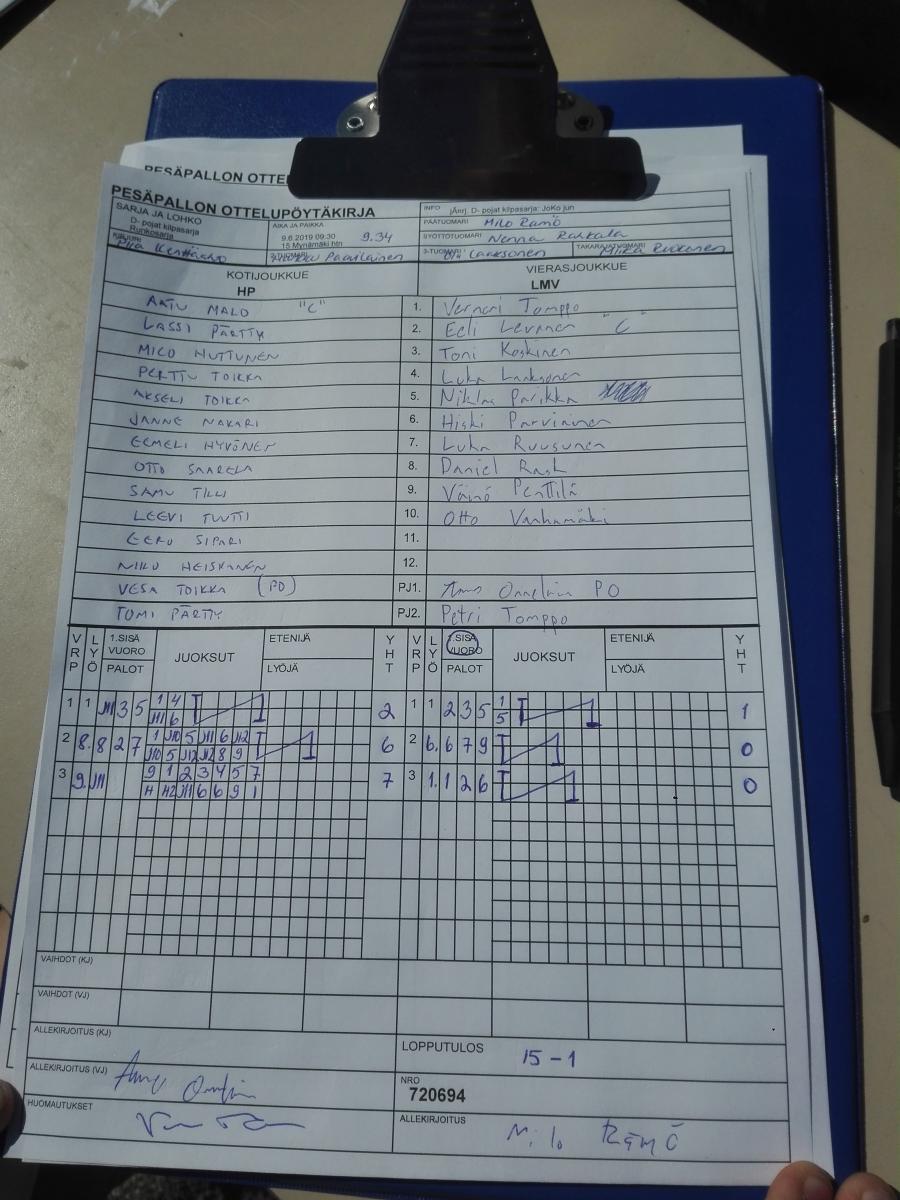 PESÄPALLON OTTE
PESÄPALLON OTTELUPÖYTÄKIRJA
SARJA JA LOHKO
D- pojat kilpasarja
Runkosarja
AIKA JA PAIKKA
9.6.2019 09:30 9.34
15 Mynämäki htn
INFO jÄnrj. D- pojat kilpasarja: JoKo jun
PÄÄTUOMARI Milo Rämö
SYÖTTÖTUOMARI Nenna Rahkala
KIRJURI Piia Kenttäaho
2-TUOMARI Paavilainen
3-TUOMARI Olli Laaksonen
TAKARAJATUOMARI Miika Ruokonen
KOTIJOUKKUE
HP
VIERASJOUKKUE
LMV
AATU MALO "C" 1. Verneri Tomppo
LASSI PÄRTTY 2. Eeli Levanen "C"
MILO HUTTUNEN 3. Toni Koskinen
PERTTU TOIKKA 4. Luka Laaksonen
AKSELI TOIKKA 5. Niklas Parikka
JANNE NAKARI 6. Hiski Parviainen
EEMELI HYVÖNEN 7. Luka Ruusunen
OTTO SAARELA 8. Daniel Rask
SAMU TILLI 9. Väinö Penttilä
LEEVI TUUTTI 10. Otto Vanhamäki
EERO SIPARI 11.
NIKO HEISKANEN 12.
VESA TOIKKA (PO) PJ1. PO
TOMI PÄRTTY PJ2. Petri Tomppo
VRP LYÖ 1.SISÄ VUORO PALOT JUOKSUT ETENIJÄ LYÖJÄ YHT VRP LYÖ 1.SISÄ VUORO PALOT JUOKSUT ETENIJÄ LYÖJÄ YHT
1 1 J11 3 5 1 4 2 1 1 2 3 5 1 1
J11 6 5
2 8. 8 2 7 1 J10 5 J11 6 J12 6 2 6. 6 7 9 0
J10 5 J12 J12 8 9
3 9. J11 9 1 2 3 4 5 7 7 3 1. 1 2 6 0
H H2 J11 6 6 9 1
VAIHDOT (KJ)
VAIHDOT (VJ)
ALLEKIRJOITUS (KJ)
LOPPUTULOS 15-1
ALLEKIRJOITUS (VJ)
NRO
720694
HUOMAUTUKSET
ALLEKIRJOITUS Milo Rämö